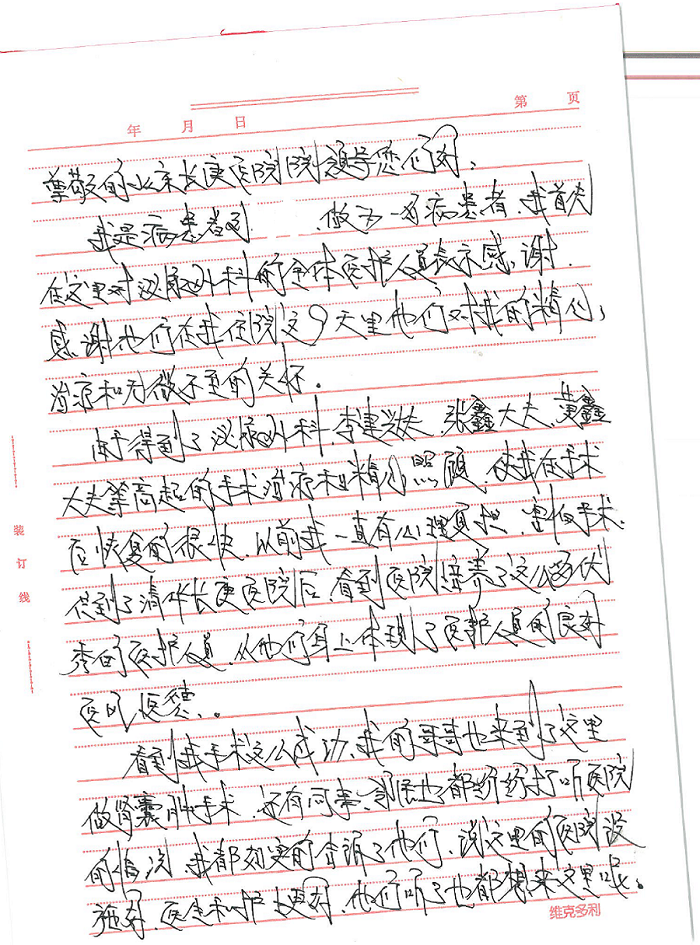 第 页
年 月 日
尊敬的北京长庚医院院领导您们好：
我是病患者刘 做为一名病患者，我首先
在这里对泌尿外科的全体医护人员表示感谢.
感谢他们在我住院这9天里他们对我的精心
治疗和无微不至的关怀。
由于得到了泌尿外科，李建兴大夫、张鑫大夫、黄鑫
大夫等高超的手术治疗和精心照顾，使我在手术
后恢复的很快，以前我一直有心理负担，害怕手术.
但到了清华长庚医院后看到医院培养了这么多优
秀的医护人员，从他们身上体现了医护人员的良好
医风医德。
看到我手术这么成功，我的哥哥也来到了这里
做肾囊肿手术，还有同事、邻居也都纷纷打听医院
的情况，我都如实的告诉了他们，说这里的医院设
施好，医生和护士更好，他们听了也都想来这里呢。
装订线
维克多利